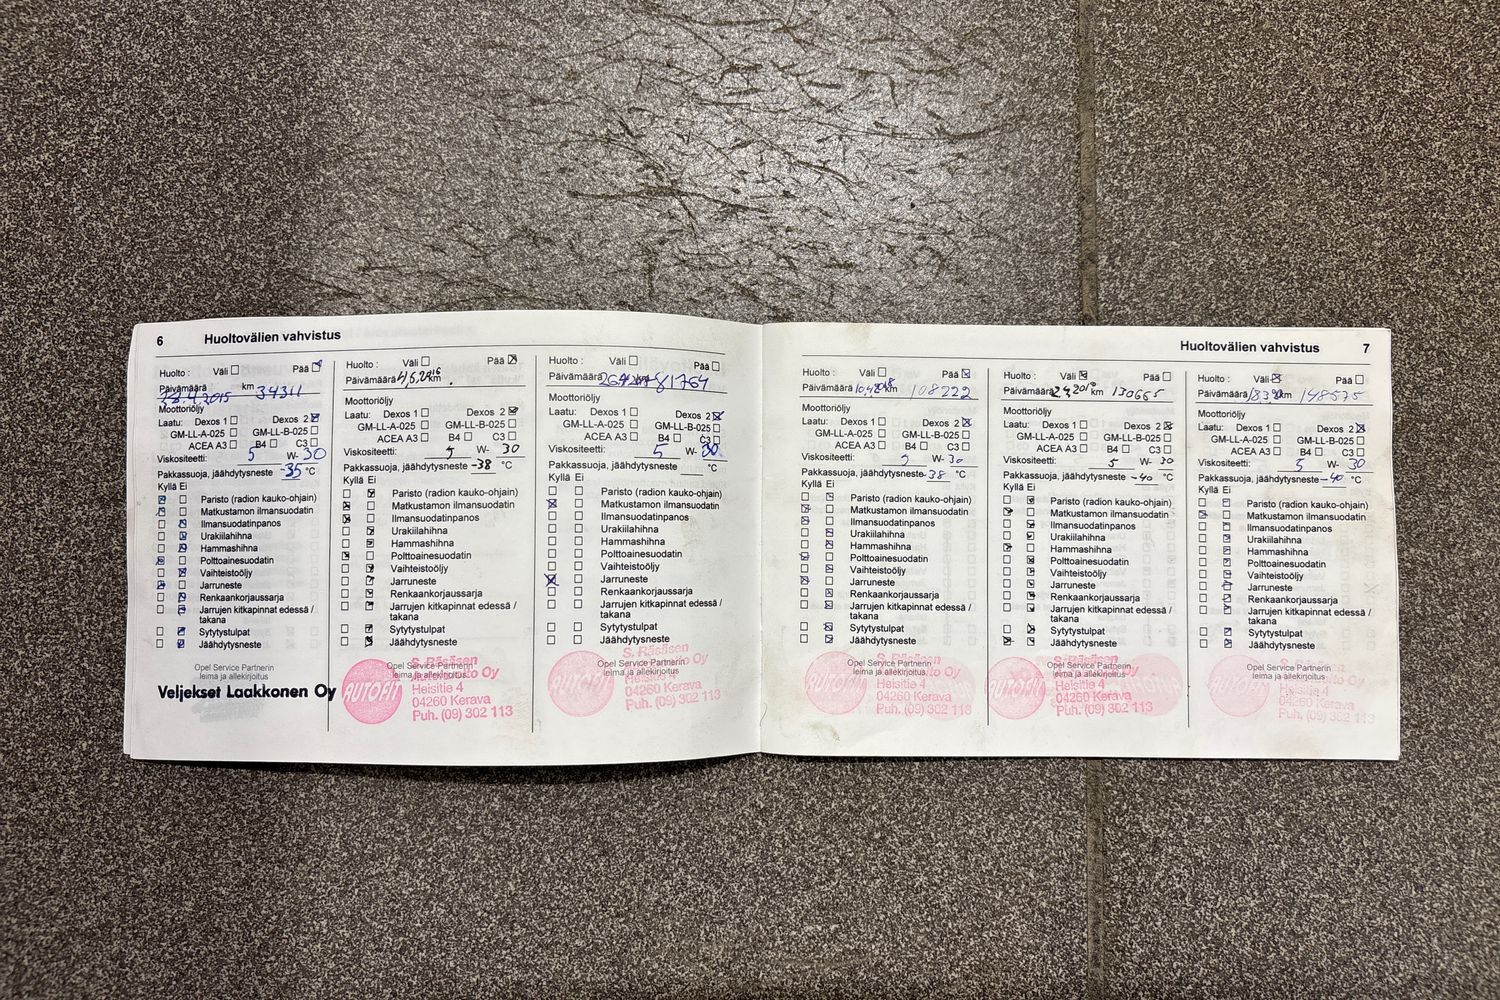 6 Huoltovälien vahvistus
Huolto : Väli Pää
Päivämäärä km 34311
22.4.2015
Moottoriöljy
Laatu: Dexos 1 Dexos 2
GM-LL-A-025 GM-LL-B-025
ACEA A3 B4 C3
Viskositeetti: 5 W- 30
Pakkassuoja, jäähdytysneste -35 °C
Kyllä Ei
Paristo (radion kauko-ohjain)
Matkustamon ilmansuodatin
Ilmansuodatinpanos
Urakiilahihna
Hammashihna
Polttoainesuodatin
Vaihteistoöljy
Jarruneste
Renkaankorjaussarja
Jarrujen kitkapinnat edessä /
takana
Sytytystulpat
Jäähdytysneste
Opel Service Partnerin
leima ja allekirjoitus
Veljekset Laakkonen Oy
Huolto : Väli Pää
Päivämäärä 4,5,2016 km
Moottoriöljy
Laatu: Dexos 1 Dexos 2
GM-LL-A-025 GM-LL-B-025
ACEA A3 B4 C3
Viskositeetti: 5 W- 30
Pakkassuoja, jäähdytysneste -38 °C
Kyllä Ei
Paristo (radion kauko-ohjain)
Matkustamon ilmansuodatin
Ilmansuodatinpanos
Urakiilahihna
Hammashihna
Polttoainesuodatin
Vaihteistoöljy
Jarruneste
Renkaankorjaussarja
Jarrujen kitkapinnat edessä /
takana
Sytytystulpat
Jäähdytysneste
Opel Service Partnerin
leima ja allekirjoitus
AUTOFIT
S. Räsäsen
Oy
Heisitie 4
04260 Kerava
Puh. (09) 302 113
Huolto : Väli Pää
Päivämäärä km 81764
Moottoriöljy
Laatu: Dexos 1 Dexos 2
GM-LL-A-025 GM-LL-B-025
ACEA A3 B4 C3
Viskositeetti: 5 W- 30
Pakkassuoja, jäähdytysneste °C
Kyllä Ei
Paristo (radion kauko-ohjain)
Matkustamon ilmansuodatin
Ilmansuodatinpanos
Urakiilahihna
Hammashihna
Polttoainesuodatin
Vaihteistoöljy
Jarruneste
Renkaankorjaussarja
Jarrujen kitkapinnat edessä /
takana
Sytytystulpat
Jäähdytysneste
Opel Service Partnerin
leima ja allekirjoitus
S. Räsäsen
Oy
Heisitie 4
04260 Kerava
Puh. (09) 302 113
Huoltovälien vahvistus 7
Huolto : Väli Pää
Päivämäärä 10,4,2018 km 108222
Moottoriöljy
Laatu: Dexos 1 Dexos 2
GM-LL-A-025 GM-LL-B-025
ACEA A3 B4 C3
Viskositeetti: 5 W- 30
Pakkassuoja, jäähdytysneste -38 °C
Kyllä Ei
Paristo (radion kauko-ohjain)
Matkustamon ilmansuodatin
Ilmansuodatinpanos
Urakiilahihna
Hammashihna
Polttoainesuodatin
Vaihteistoöljy
Jarruneste
Renkaankorjaussarja
Jarrujen kitkapinnat edessä /
takana
Sytytystulpat
Jäähdytysneste
Opel Service Partnerin
leima ja allekirjoitus
Heisitie 4
04260 Kerava
Puh. (09) 302 113
Huolto : Väli Pää
Päivämäärä km 130665
Moottoriöljy
Laatu: Dexos 1 Dexos 2
GM-LL-A-025 GM-LL-B-025
ACEA A3 B4 C3
Viskositeetti: 5 W- 30
Pakkassuoja, jäähdytysneste -40 °C
Kyllä Ei
Paristo (radion kauko-ohjain)
Matkustamon ilmansuodatin
Ilmansuodatinpanos
Urakiilahihna
Hammashihna
Polttoainesuodatin
Vaihteistoöljy
Jarruneste
Renkaankorjaussarja
Jarrujen kitkapinnat edessä /
takana
Sytytystulpat
Jäähdytysneste
Opel Service Partnerin
leima ja allekirjoitus
AUTOFIT
Heisitie 4
04260 Kerava
Puh. (09) 302 113
Huolto : Väli Pää
Päivämäärä km 148575
Moottoriöljy
Laatu: Dexos 1 Dexos 2
GM-LL-A-025 GM-LL-B-025
ACEA A3 B4 C3
Viskositeetti: 5 W- 30
Pakkassuoja, jäähdytysneste -40 °C
Kyllä Ei
Paristo (radion kauko-ohjain)
Matkustamon ilmansuodatin
Ilmansuodatinpanos
Urakiilahihna
Hammashihna
Polttoainesuodatin
Vaihteistoöljy
Jarruneste
Renkaankorjaussarja
Jarrujen kitkapinnat edessä /
takana
Sytytystulpat
Jäähdytysneste
Opel Service Partnerin
leima ja allekirjoitus
Heisitie 4
04260 Kerava
Puh. (09) 302 113